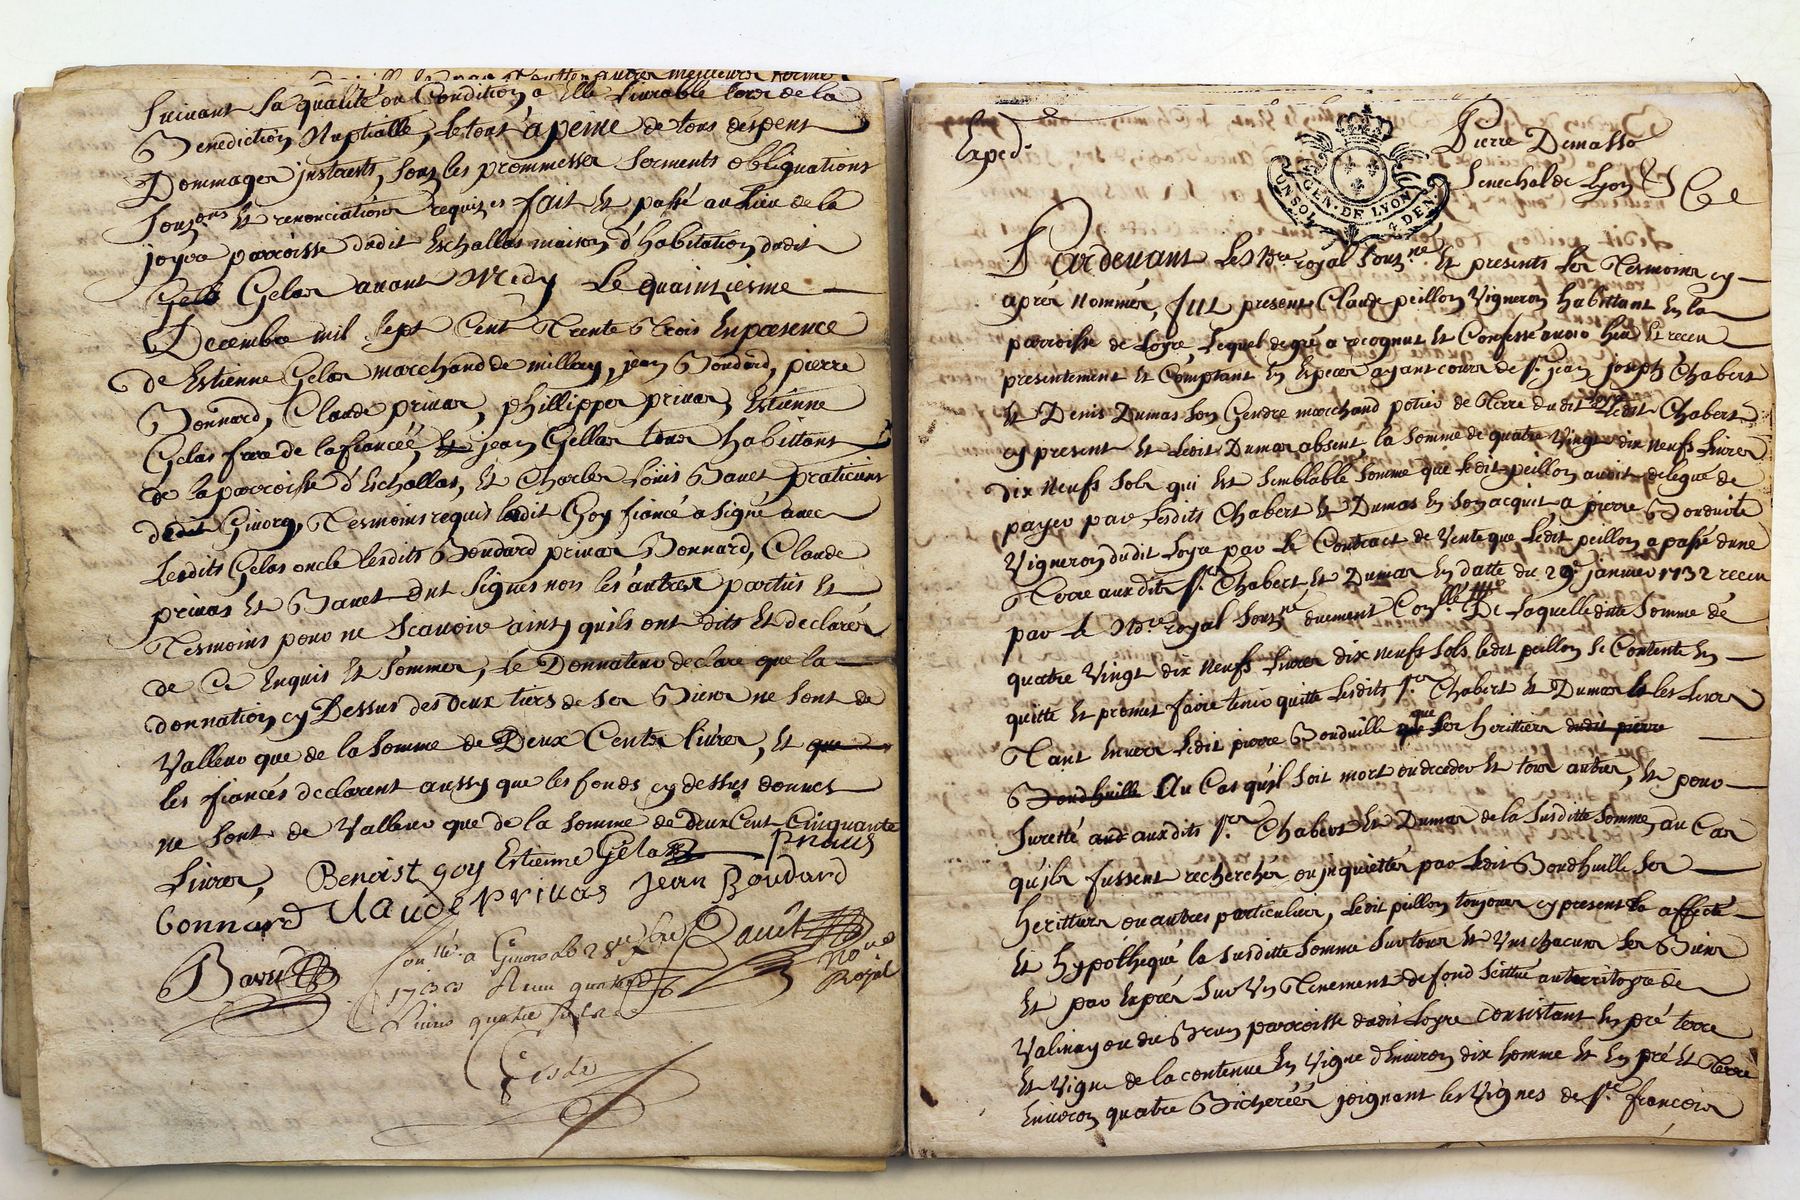 suivant sa qualité ou Condition a Elle livrable lors de la
Benediction Nuptialle, le tout a peine de tous despens
Dommages jnterests, sous les prommesses serments obligations
soumons Et renonciations requises fait Et passé au lieu de la
joyea parroisse dudit Eschallas maison d'habitation dudit
Gelas avant Midy Le quainziesme
Decembre mil sept Cent Trente Trois En presence
de Estienne Gelas marchand de millery, jean Boudard, pierre
Bonnard, Claude privas, phillippes privas, Estienne
Gelas frere de la fiancée, et jean Gellas tous habittants
de la parroisse d'Eschallas, Et Charles Louis Bavet praticien
dudit Givors, Tesmoins requis ledit Goy fiancé a signé avec
lesdits Gelas oncle lesdits Boudard privas Bonnard, Claude
privas Et Bavet Ont signés non les autres parties Et
Tesmoins pour ne Scavoir ainsy quils ont dits Et declarés
de Ce Enquis Et sommes, le Donnateur declare que la
donnation cy Dessus des deux tiers de ses Biens ne sont de
Valleur que de la somme de Deux Cents livres, Et que
les fiancés declarent aussy que les fonds cy dessus donnés
ne sont de Valleur que de la somme de deux Cent Cinquante
Livres, Benoist goy Estienne Gelas Privas
bonnard Claude Privas Jean Boudard
Bavet Bavet No
Roÿal
a Givors le 28
1733 Recu quatorze
livres quatre sols
Exped.
Pierre Dumasso
Senechal de Lyon
GEN. DE LYON
UN SOL 4 DEN.
Pardevant Le No.re royal souz.né Et presents les Tesmoins cy
aprés Nommés, fut present Claude peillon Vigneron habittant En la
parroisse de Loyre, Lequel de gré a recognut Et Confessé avoir heu Et receu
presentement Et Comptant En Especes ayant cours de Sr. jean joseph Chabert
Et Denis Dumas son Gendre marchand potier de Terre dudit Loyre Ledit Chabert
cy present Et Ledit Dumas absent, la somme de quatre Vingt dix neufs livres
dix neufs sols qui Est semblable somme que ledit peillon audit delegué de
payer par lesdits Chabert Et Dumas En son acquit a pierre Bonduille
Vigneron dudit Loyre par Le Contract de Vente que ledit peillon a passé d'une
Terre auxdits Srs. Chabert Et Dumas En datte du 29e janvier 1732 receu
par Le No.re royal souz.né duement Con.llé De laquelle ditte somme de
quatre Vingt dix neufs livres dix neufs sols ledit peillon se Contente En
quitte Et promet faire tenir quitte lesdits Srs. Chabert Et Dumas Et les leurs
Tant Envers ledit pierre Bonduille que ses heritiers dudit pierre
Bondhuille Au Cas qu'il soit mort ou decedes Et tous autres, Et pour
suretté auxdits Srs. Chabert Et Dumas de la susditte somme, au Cas
qu'ils fussent recherchés ou jnquiettés par ledit Bondhuille ses
herittiers ou autres particuliers, ledit peillon toujours cy present a affecté
Et hypothequé la susditte somme sur tous Et Uns chacuns ses Biens
Et par Exprés sur Un Tenement de fond scittué au territoyre de
Valinay ou du Brun parroisse dudit Loyre Consistant En pré terre
Et Vigne de la contenue En Vigne d'Environ dix homme Et En pré Et Terre
Environ quatre Bicherées joignant les Vignes de Sr. françois